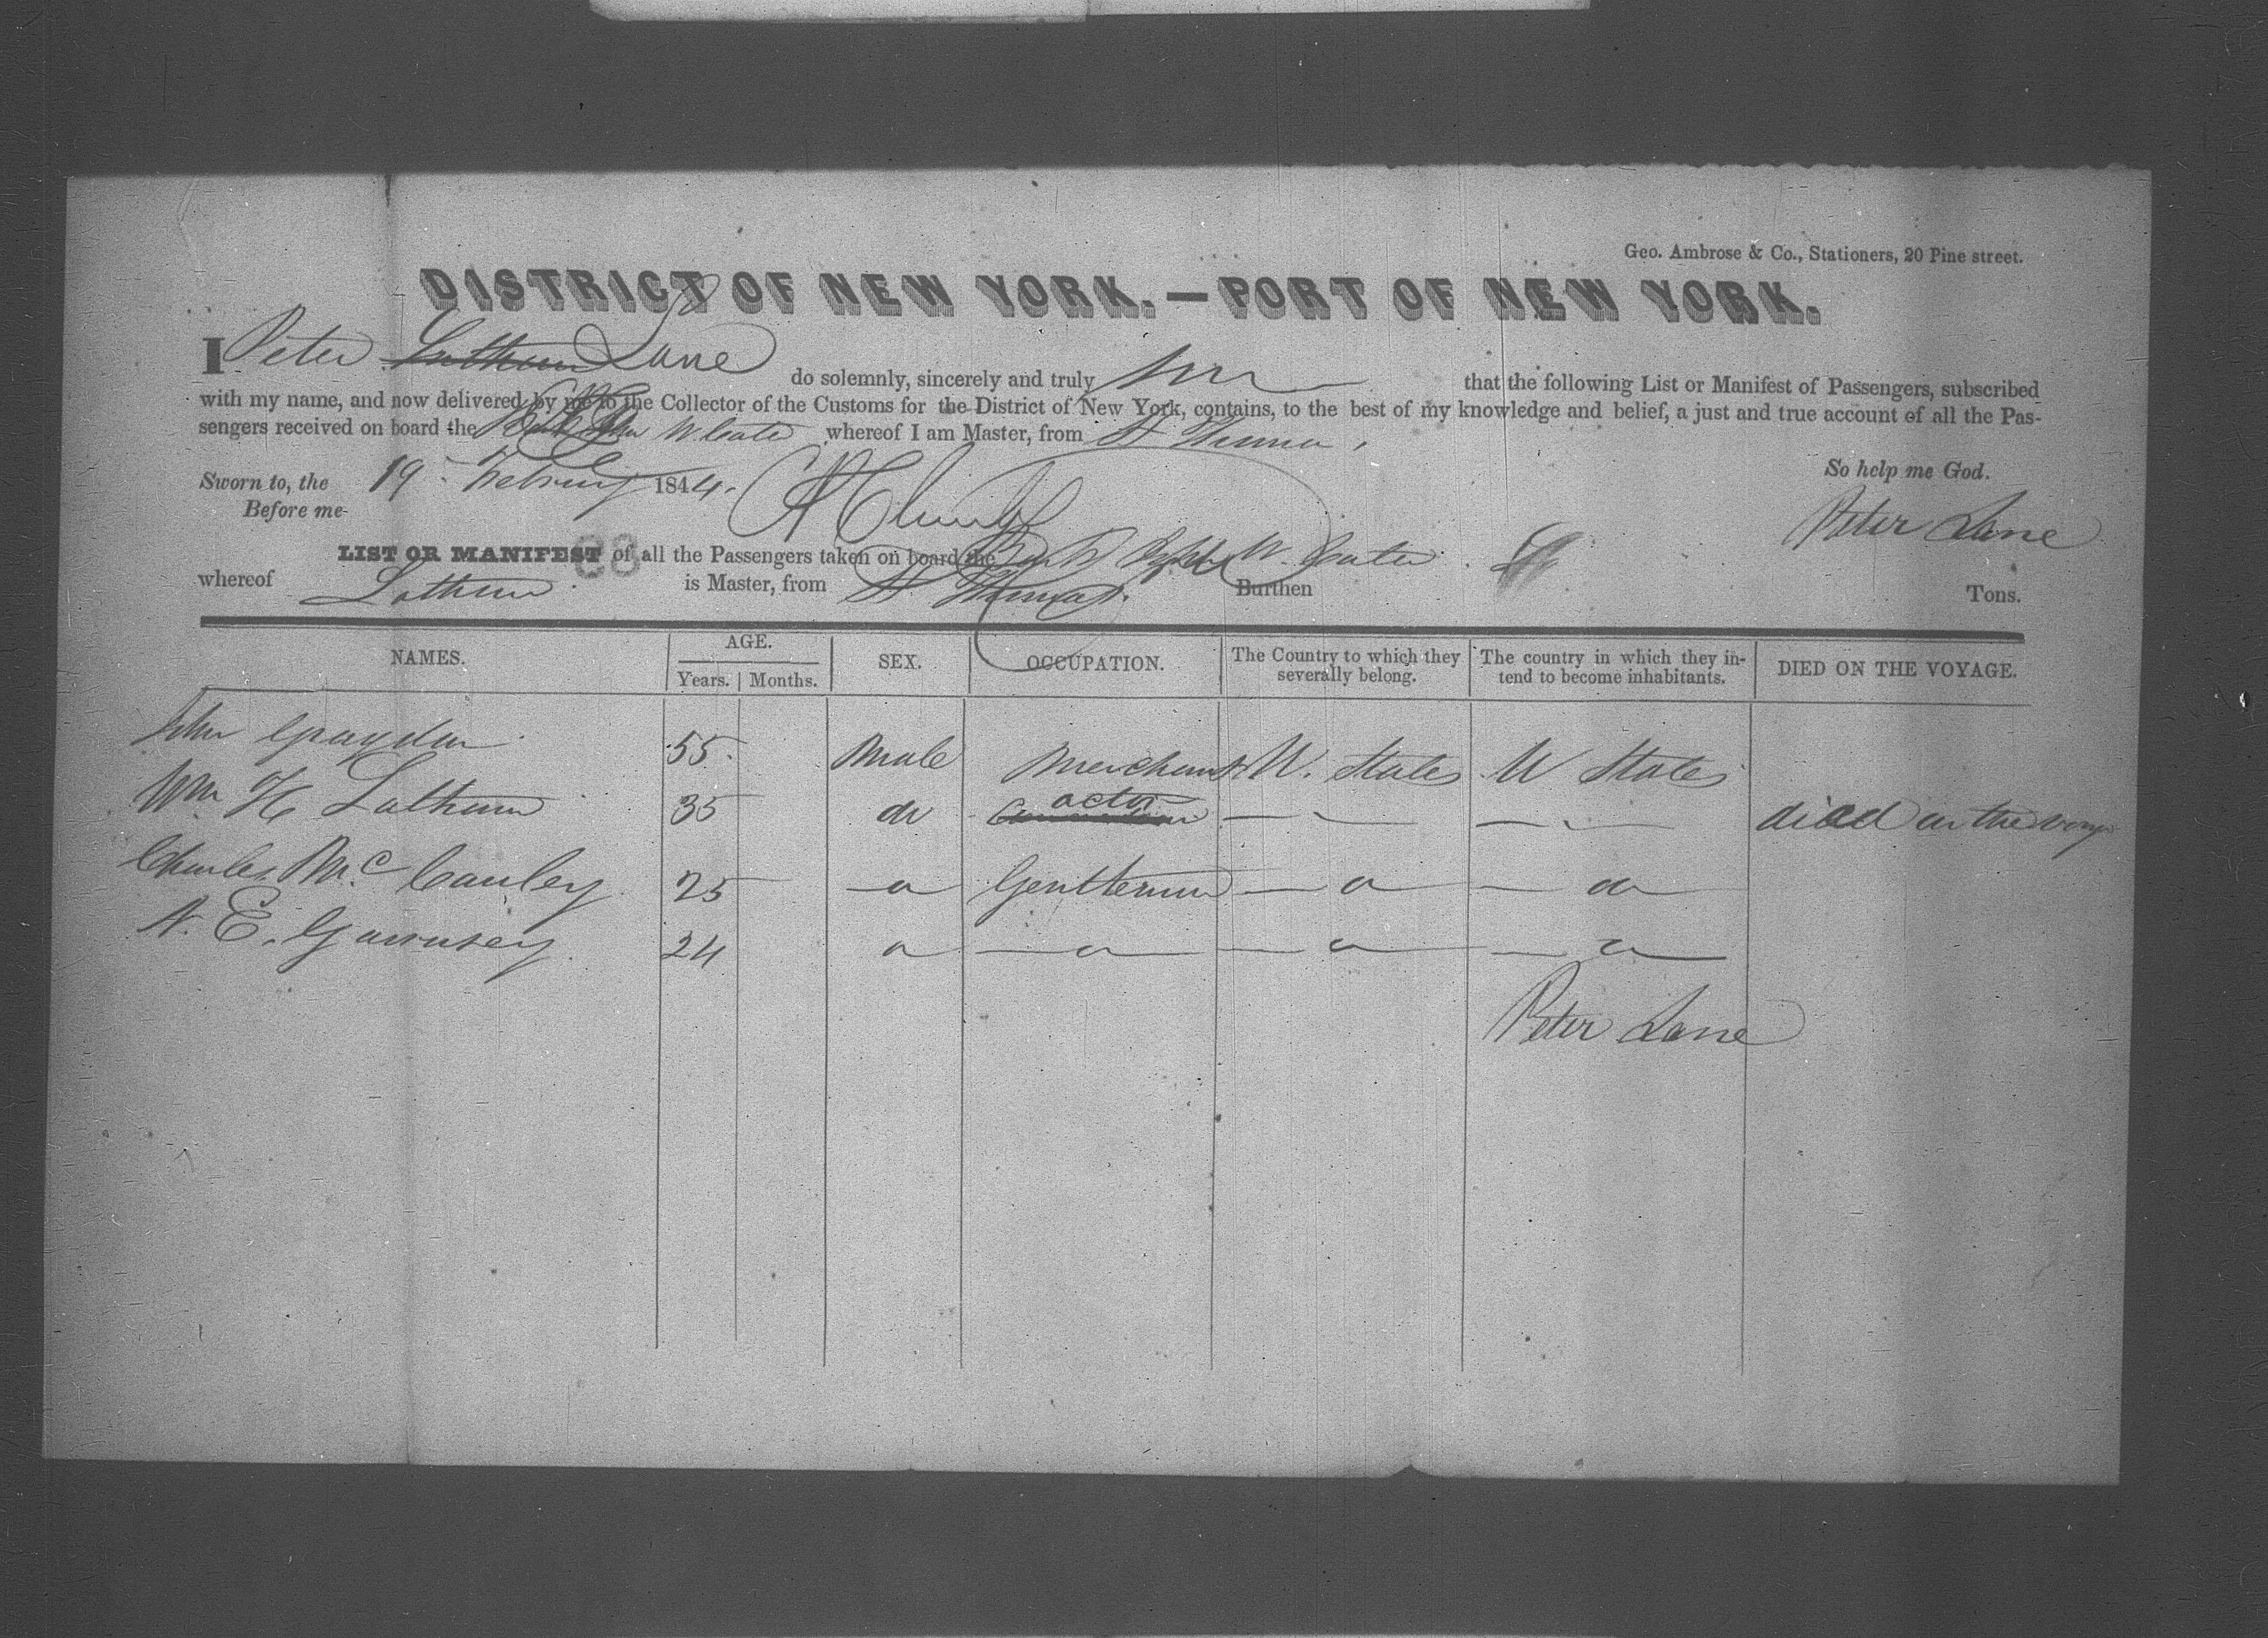 Geo. Ambrose & Co., Stationers, 20 Pine street.
DISTRICT OF NEW YORK.—PORT OF NEW YORK.
I Peter Lane do solemnly, sincerely and truly that the following List or Manifest of Passengers, subscribed
with my name, and now delivered by me to the Collector of the Customs for the District of New York, contains, to the best of my knowledge and belief, a just and true account of all the Pas-
sengers received on board the Bark John W. Cater whereof I am Master, from St Thomas,
So help me God.
Sworn to, the 19 February 1844.
Before me-
Peter Lane
LIST OR MANIFEST of all the Passengers taken on board the Bark John W. Cater
whereof Lathum is Master, from St Thomas. Burthen Tons.
NAMES. AGE. SEX. OCCUPATION. The Country to which they severally belong. The country in which they intend to become inhabitants. DIED ON THE VOYAGE.
Years. Months.
John Graydon 55 Male Merchant U. States U States
Wm H Lathum 35 do actor died on the voyge
Charles McCauley 25 Gentleman
N. E. Guernsey 24
Peter Lane